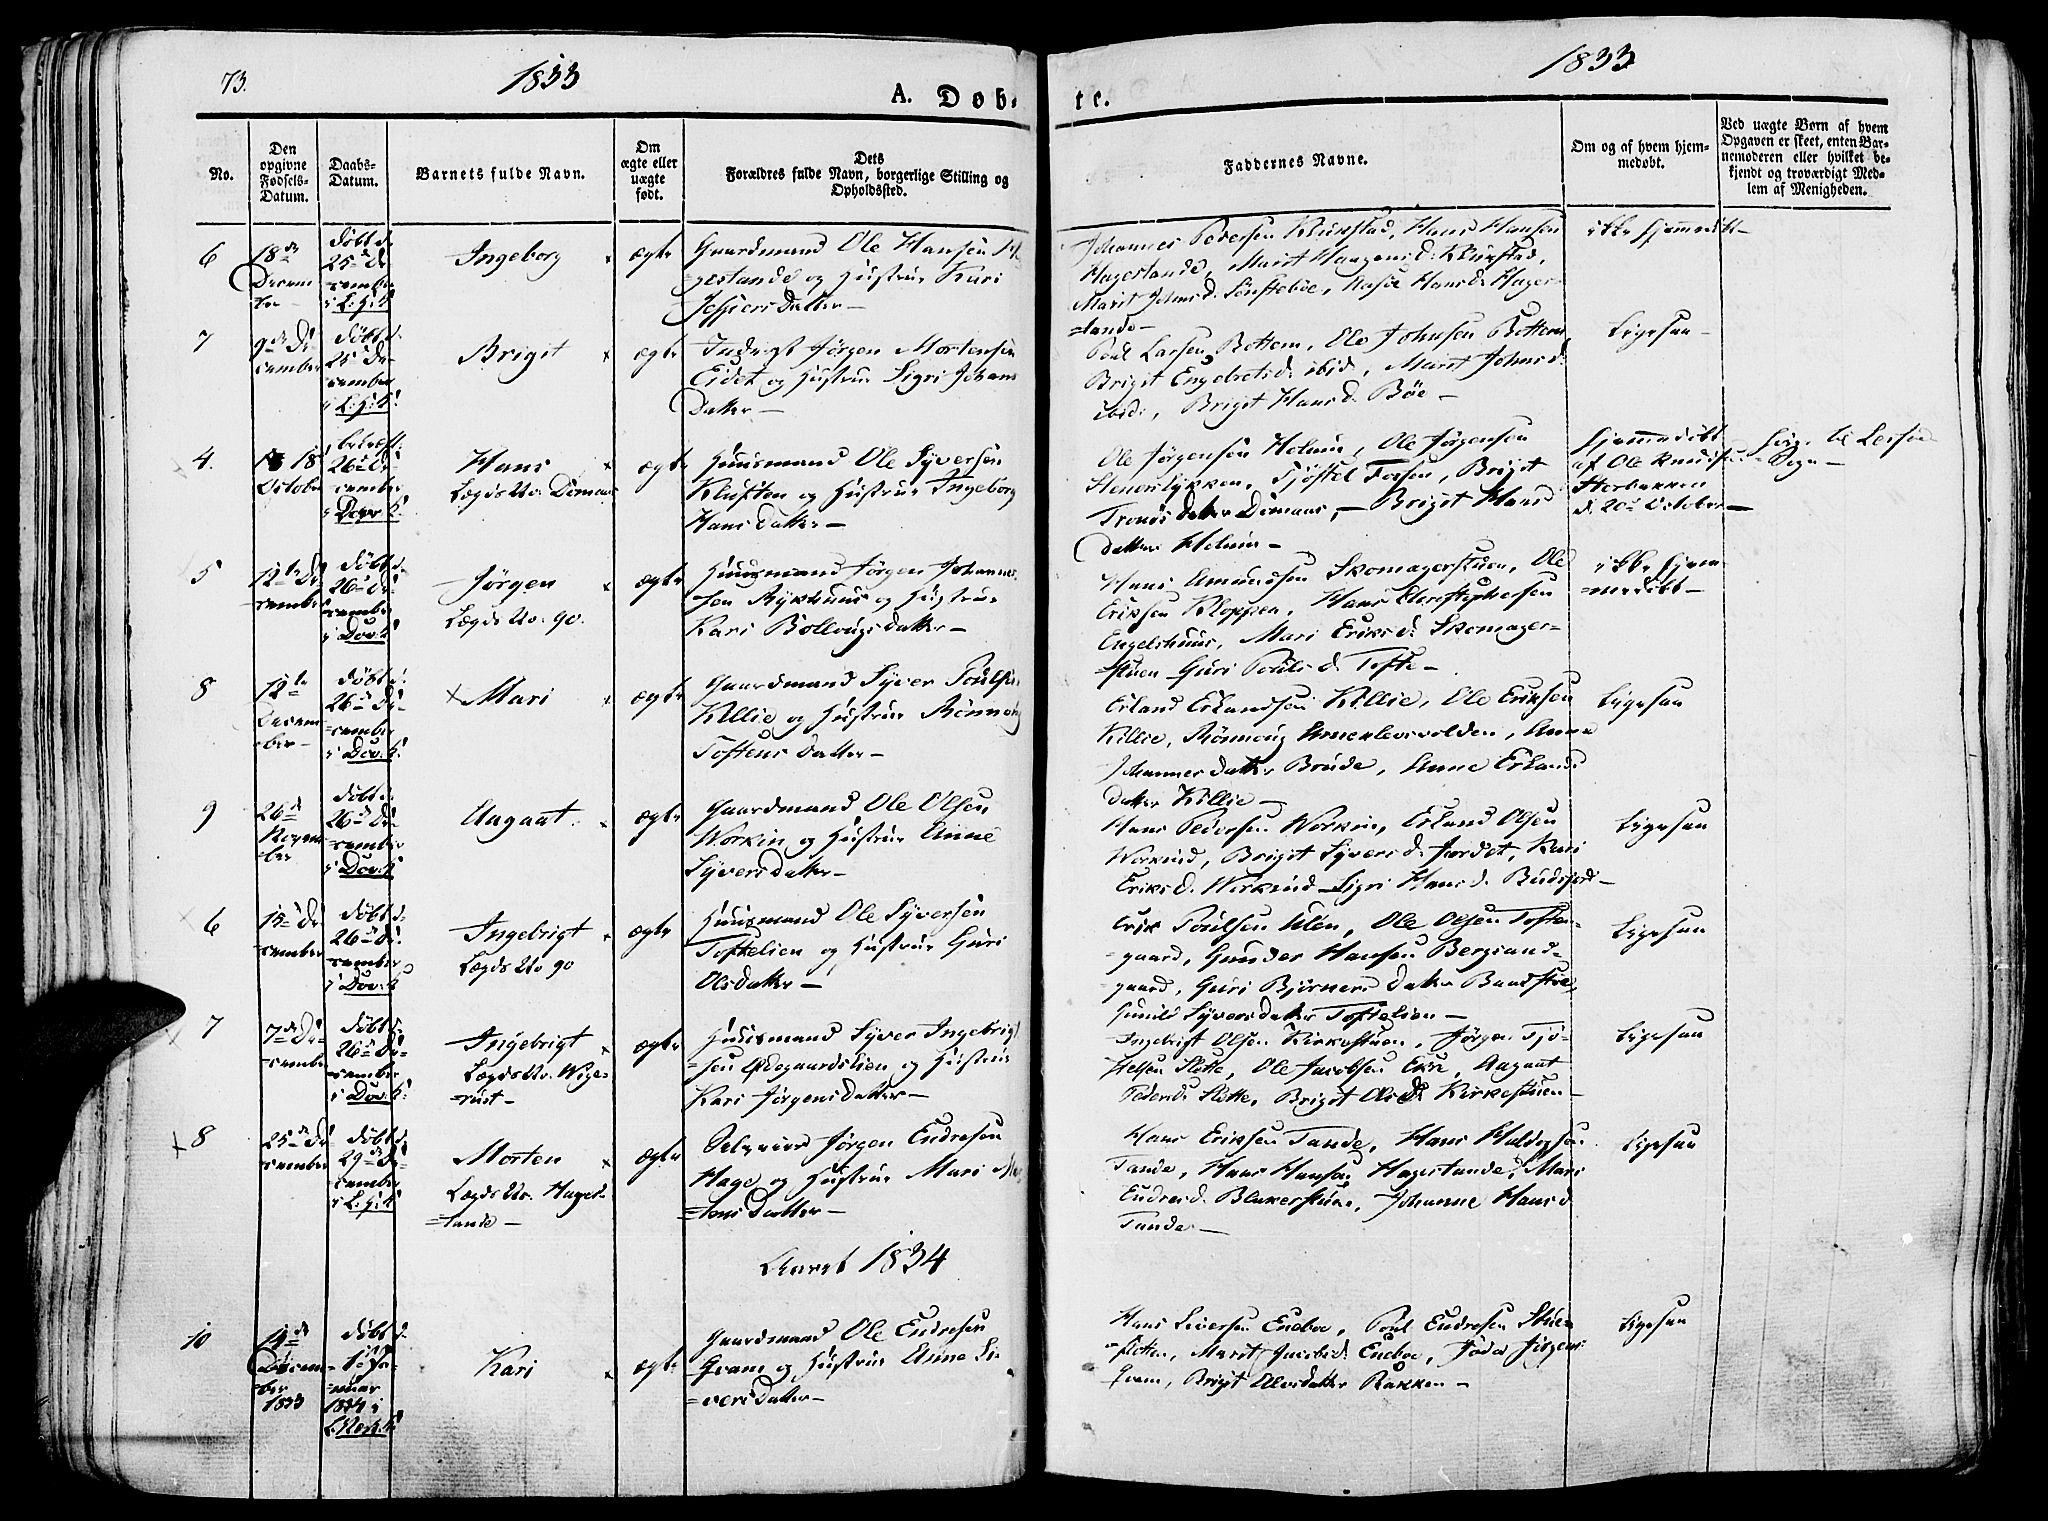 73.
1833
1833
A. Døb-
te.
No.
Den opgivne Fødsels-Datum.
Daabs-Datum.
Barnets fulde Navn.
Om ægte eller uægte født.
Dets Forældres fulde Navn, borgerlige Stilling og Opholdssted.
Faddernes Navne.
Om og af hvem hjem-medøbt.
Ved uægte Børn af hvem Opgaven er skeet, enten Bar-nemoderen eller hvilket be-kjendt og troværdigt Med-lem af Menigheden.
6
18de
Decem
ber
døbt d.
25 De
cember
i L: H: K!
Ingeborg
ægte
Gaardmand Ole Hansen Ha
gestande og Hustrue Kari
Jespersdatter
Johannes Pedersen Klukstad, Hans Hansen
Hagestande, Marit Haagensd: Klukstad,
Marit Johnsd. Sønsteboe, Hansd. Hage-
=stande
ikke hjemmedøbt
7
9de De
cember
døbt d.
25 De
cember
i L: H: K!
Brigit
ægte
Inderst Jørgen Mortensen
Eidet og Hustrue Sigri Johans
Datter
Poul Larsen Bottem, Ole Johnsen Bottem
Brigit Engebretsd. ibid, Marit Johnsd:
ibid:, Brigit Hansd. Bøe
Ligesaa
4.
18
October
bekræft.
26 De
cember
i Dovr K!
Hans
Lægds No. Domaas
ægte
Huusmand Ole Syversen
Kluften og Hustrue Ingeborg
Hans datter
Ole Jørgensen Holum, Ole Jørgensen
Stenerslykken, Tjøstel Fossen, Brigit
Tronds datter Domaas, Brigit Hans
datter Holum
hjemmedøbt
af Ole Knuds
d. 20 October
til Lessøe
Sogn
5
12te De
cember
døbt d.
26 De
cember
i Dov: K!
Jørgen
Lægds No. 90.
ægte
Huusmand Jørgen Johannes
sen Rykhuus og Hustrue
Kari Bottougsdatter
Hans Amundsen Skomagerstuen, Ole
Eriksen Kloppen, Hans Christophersen
Engelshuus, Mari Eriksd: Skomager-
stuen Guri Poulsd. Tofte
ikke hjem
medøbt
8
12te
Decem
ber
døbt d.
26 De
cember
i Dov: K!
Mari
ægte
Gaardmand Syver Poulsen
Killie og Hustrue Rønnoug
Tostens datter
Erland Erlandsen Killie, Ole Eriksen
Killie, Rønnoug, Anne
Johannesdatter Brude, Anne Erlands
datter Killie
Ligesaa
9
26de
Novem
ber
døbt d.
26 De
cember
i Dov: K!
Aagaat
ægte
Gaardmand Ole Olsen
Workin og Hustrue Anne
Syversdatter
Hans Pedersen Workin, Erland Olsen
Workind, Brigit Syversd. Jordet, Kari
Eriksd. Workind, Sigri Hansd. Budsjord
Ligesaa
6
15 De
cember
døbt d.
26 De
cember
i Dov: K!
Ingebrigt
Lægds No 90
ægte
Huusmand Ole Syversen
Toftelien og Hustrue Guri
Olsdatter
Erik Poulsen Ulen, Ole Olsen Tofte
=gaard, Gunder Hansen Bergsand
gaard, Guri Bjørners datter
Gunild Syversdatter Toftelien
Ligesaa
7
7de De
cember
døbt d.
26 De
cember
i Dov: K!
Ingebrigt
Lægds No. Wige-
rust
ægte
Huusmand Syver Ingebrigt
sen Ødegaardslien og Hustrue
Kari Jørgensdatter
Ingebrigt Olsen Kirkestuen, Jørgen Tjø-
stelsen Slette, Ole Jacobsen Ekre, Aagaat
Pedersd. Slette, Brigit Olsd. Kirkestuen
Ligesaa
8
25de De
cember
døbt d.
29 De
cember
i L: H: K!
Morten
Lægds No. Hages-
=tande
ægte
Selveier Jørgen Endresen
Hage og Hustrue Mari Mor
=tensdatter
Hans Eriksen Tande, Hans Haldorsen
Tande, Hans Hansen Hagestande, Mari
Endresd. Blekerstuen, Johanne Hansd
Tande
Ligesaa
Aaret 1834
10
14de
Decem
ber
1833
døbt d.
1 Ja
nuar
1834 i
L. Werk K!
Kari
ægte
Gaardmand Ole Endresen
Qvam og Hustrue Anne Si
=versdatter
Hans Siversen Eneboe, Poul Endresen Stuen
flotten, Marit Jacobsd. Eneboe, Jørgens
Qvam, Brigit Olersdatter Bakken
Ligesaa